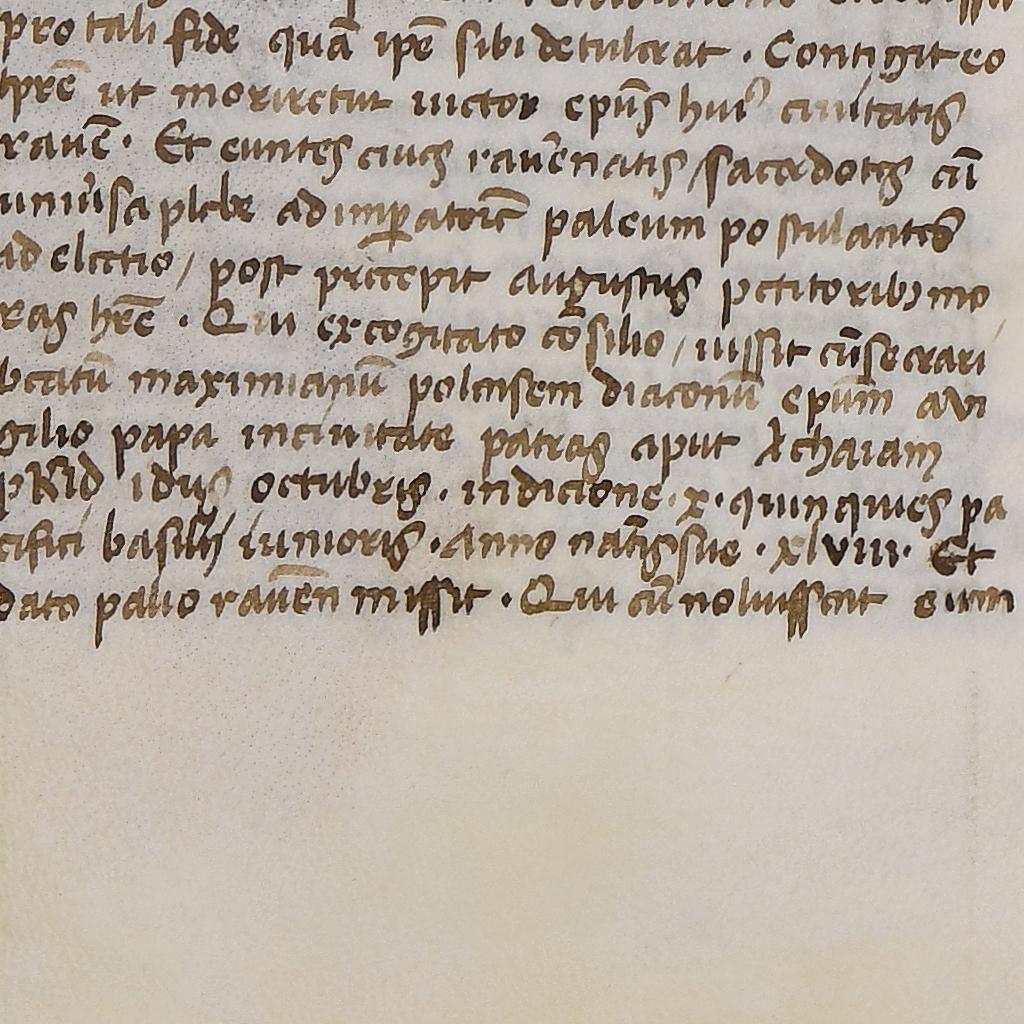 pro tali fide quā ipē sibi detulerat . Contigit eo
tprē ut moriretur uictor epūs huiꝰ ciuitatis
rauēn . Et euntes ciues rauēnatis / sacerdotes cū
uniūsa plebe ad imꝑatorē paleum postulantes
ad electio / post precepit augustus petitoribꝫ mo
ras hrē . Qui excogitato cōsilio / iussit cūsecrari
beatū maximianū polensem diaconū epūm a ui
gilio papa in ciuitate patras aput Achaiam
pRid idus octubris . indicione . x . quinquies pa
cifici basilii iunioris . Anno natīs sue . xlviii . Et
dato palio rauēn missit . Qui cū noluissent eum